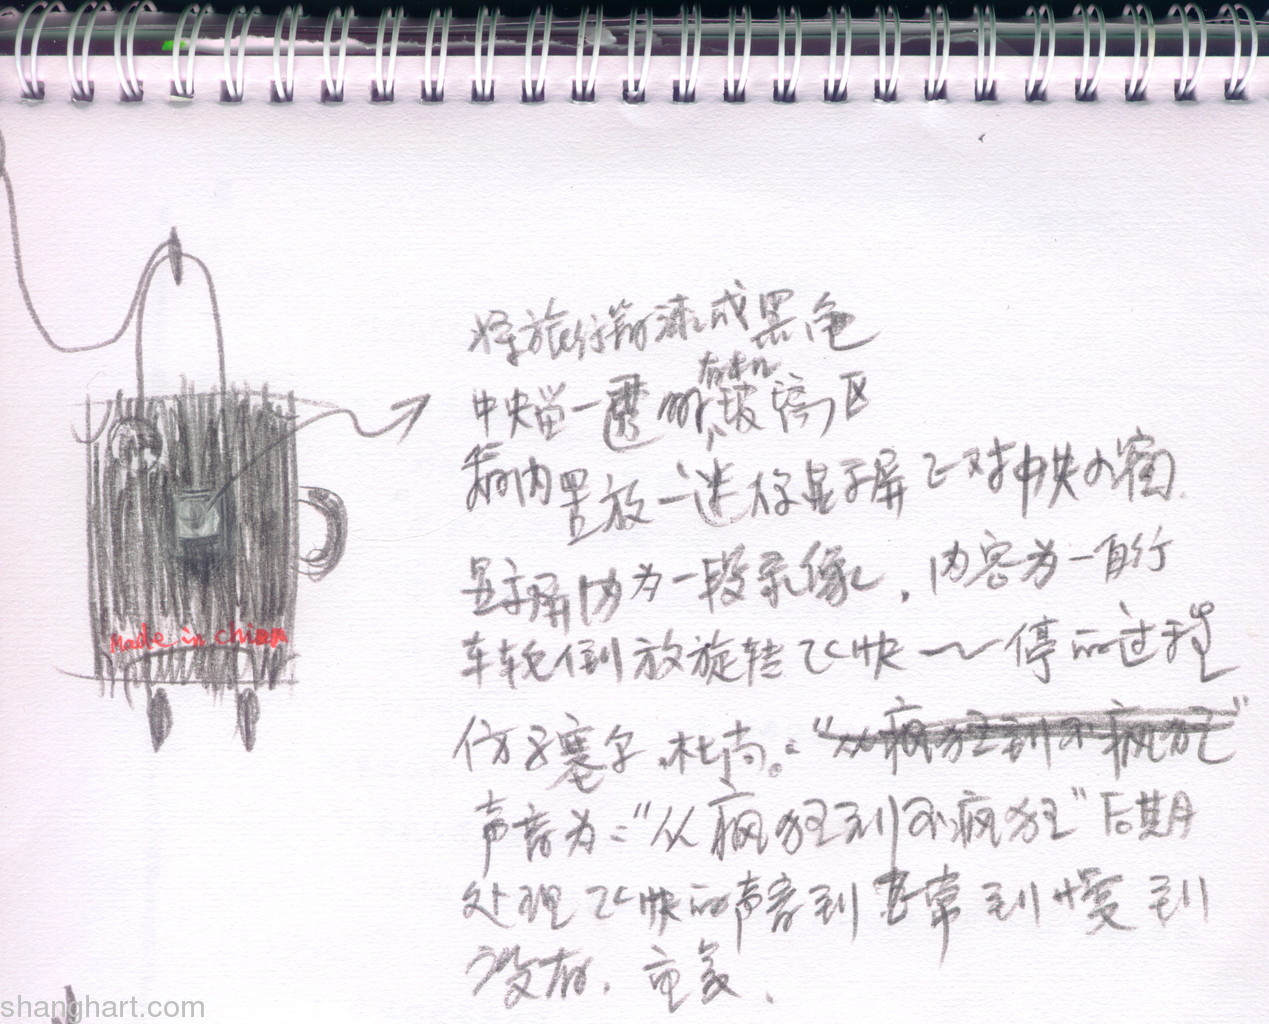 将旅行箱漆成黑色
有机
中央留一透明玻璃区
箱内置放一迷你显示屏 正对中央小窗.
显示屏内为一段录像, 内容为一自行
车轮倒放旋转飞快 ～ 停的过程
仿 塞尔.杜尚。: "从疯狂到不疯狂"
声音为: "从疯狂到不疯狂" 后期
处理 飞快的声音到 正常 到慢 到
没有.
Made in china
shanghart.com